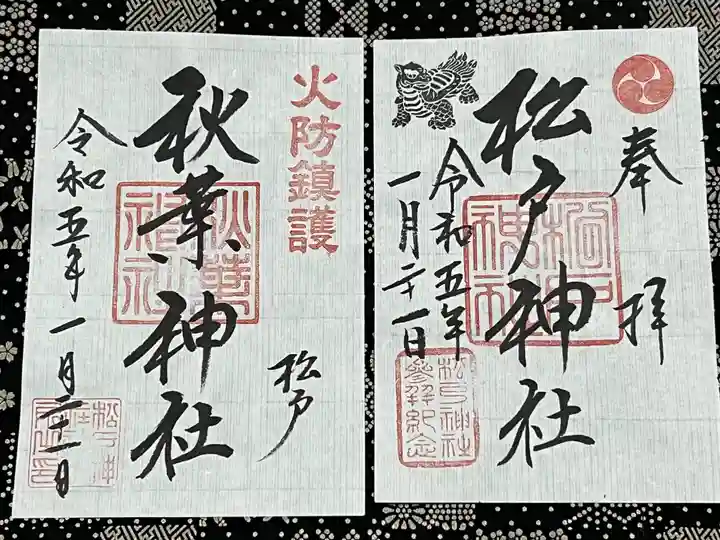 奉拝
松戸神社
令和五年
一月二十一日
松戸神社
参拝紀念
火防鎮護
松戸
秋葉神社
秋葉神社
令和五年一月二十一日